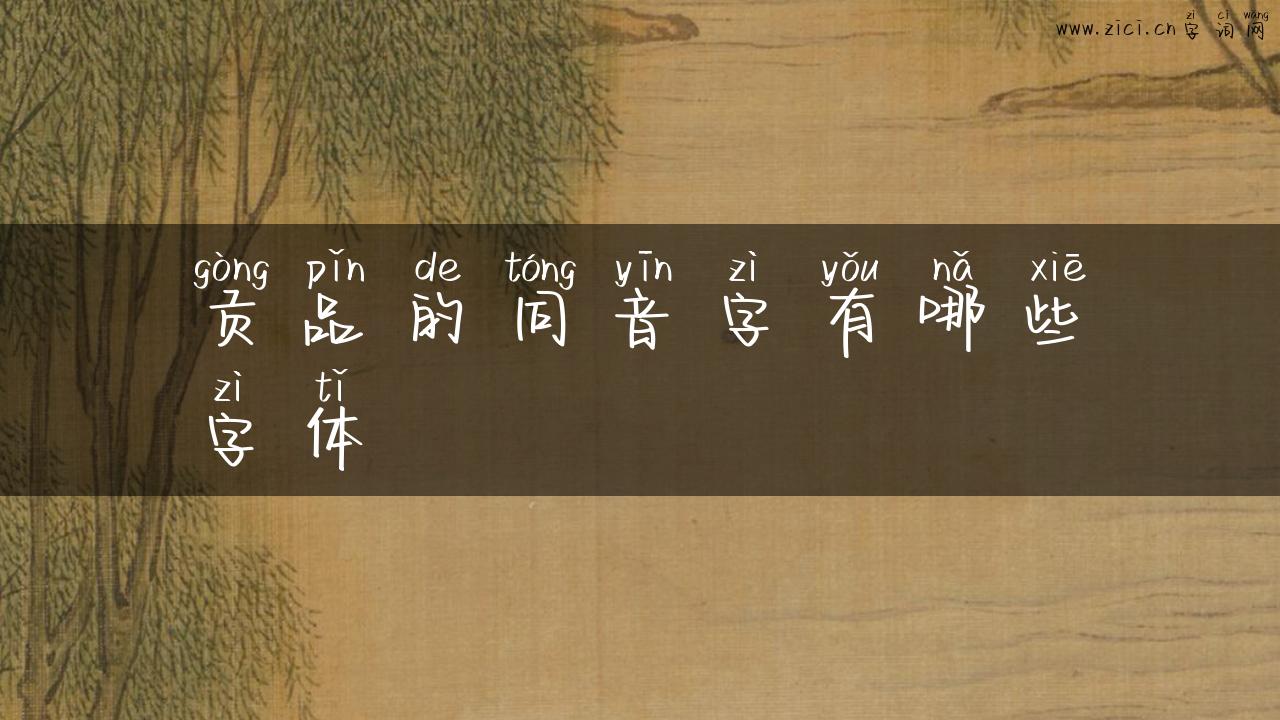 zì cí wǎng
www.zici.cn字词网
gòng pǐn de tóng yīn zì yǒu nǎ xiē
贡品的同音字有哪些
zì tǐ
字体